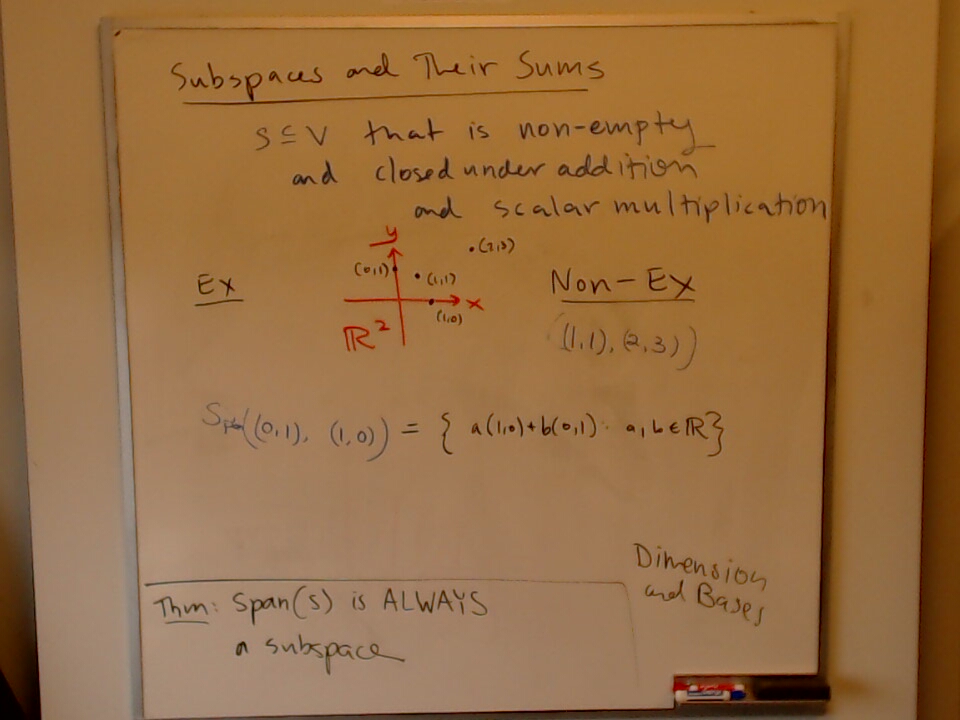 Subspaces and Their Sums
S ⊆ V that is non-empty
and closed under addition
and scalar multiplication
y
(2,3)
(0,1)
(1,1)
Ex
Non-Ex
x
(1,0)
ℝ²
((1,1), (2,3))
((0,1), (1,0)) = { a(1,0)+b(0,1): a,b∈ℝ}
Dimension
and Bases
Thm: Span(S) is ALWAYS
a subspace